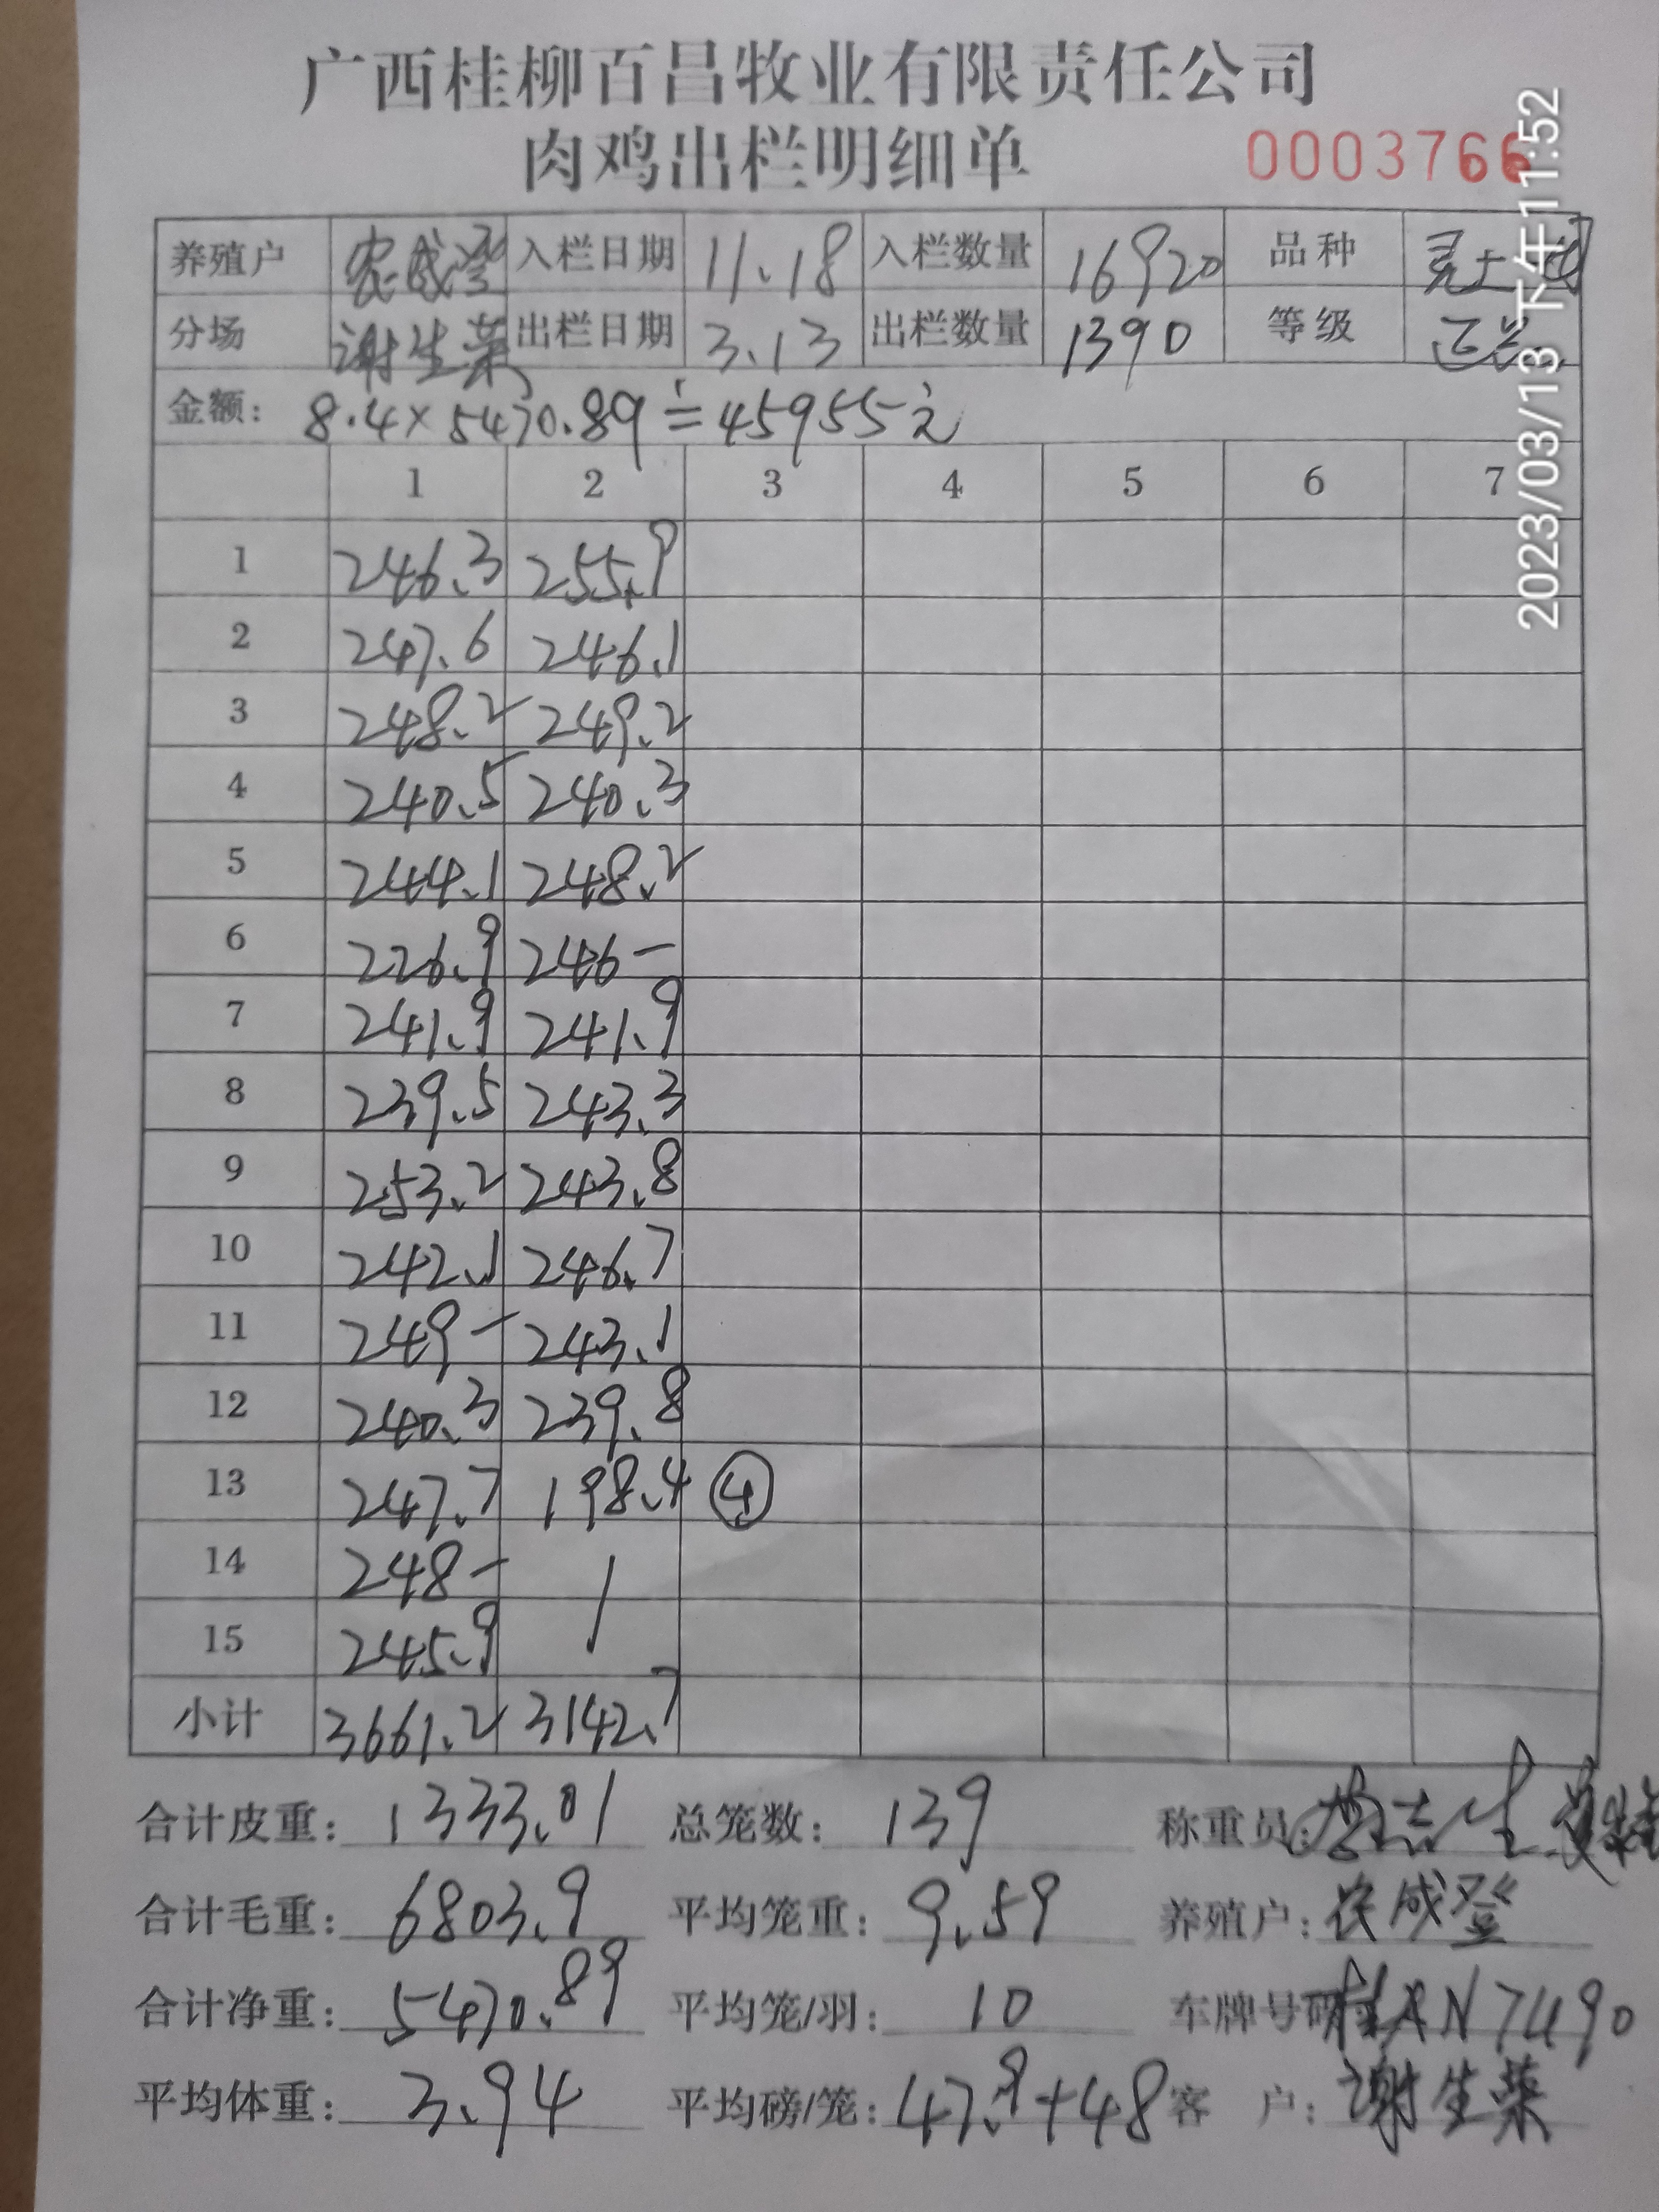 广西桂柳百昌牧业有限责任公司
肉鸡出栏明细单 0003766
养殖户 农成登 入栏日期 11.18 入栏数量 16920 品种
分场 谢生荣 出栏日期 3.13 出栏数量 1390 等级
金额: 8.4×5470.89≐45955元
1 2 3 4 5 6 7
1 246.3 255.9
2 247.6 246.1
3 248.2 249.2
4 240.5 240.3
5 244.1 248.2
6 226.9 246-
7 241.9 241.9
8 239.5 243.3
9 253.2 243.8
10 242.1 246.7
11 249- 243.1
12 240.3 239.8
13 247.7 198.4 ④
14 248- /
15 245.9
小计 3661.2 3142.7
合计皮重: 1333.01 总笼数: 139 称重员:
合计毛重: 6803.9 平均笼重: 9.59 养殖户: 农成登
合计净重: 5470.89 平均笼/羽: 10 车牌号码 桂AN7490
平均体重: 3.94 平均磅/笼: 47.9+48 客 户: 谢生荣
2023/03/13 下午11:52